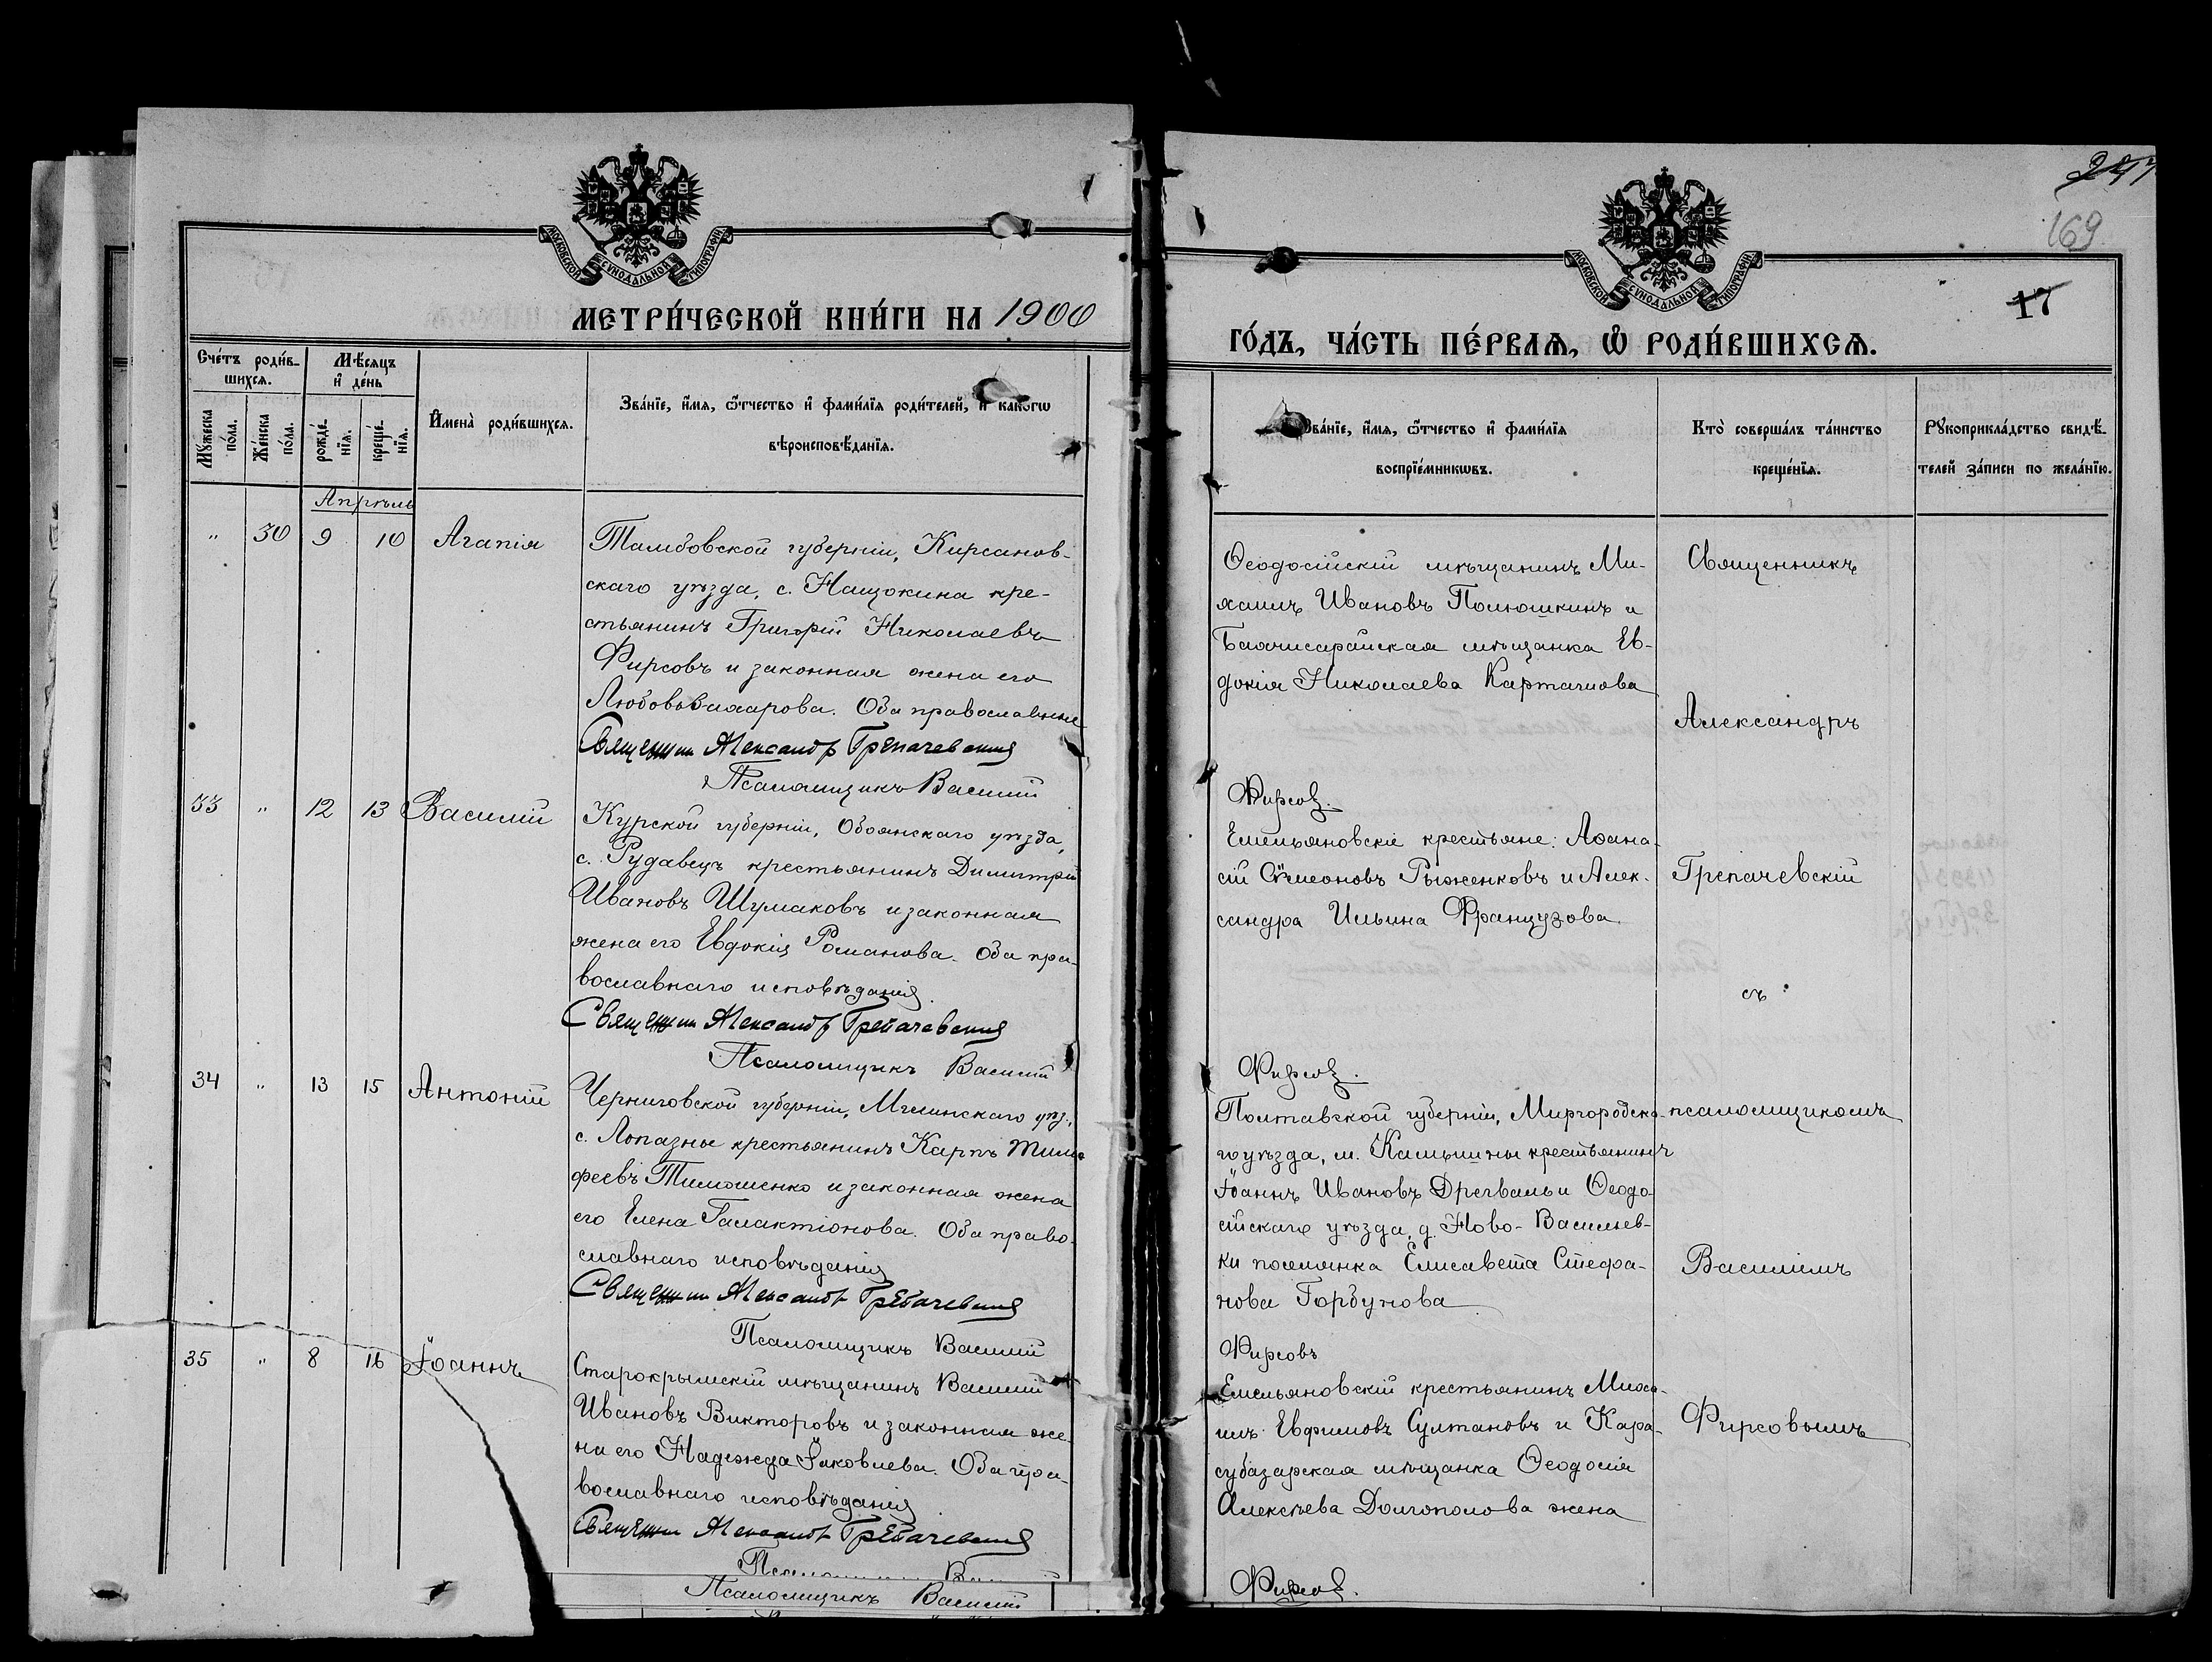 МОСКОВСКОЙ СѴНОДАЛЬНОЙ ТИПОГРАФІИ
МЕТРИ́ЧЕСКОЙ КНИ́ГИ НА 1900
Сче́тъ роди́в-
шихсѧ.
Мѣ́сѧцъ
и҆ де́нь
Мꙋ́жеска
по́ла.
Же́нска
по́ла.
рожде́-
нїѧ.
креще́-
нїѧ.
И҆мена̀ роди́вшихсѧ.
Зва́нїе, и҆́мѧ, ѻ҆́тчество и҆ фами́лїѧ роди́телей, и҆ како́гѡ
вѣроисповѣ́данїѧ.
Апрѣль
" 30 9 10 Агапія
Тамбовской губерніи, Кирсанов-
скаго уѣзда, с. Нащокина кре-
стьянинъ Григорій Николаевъ
Фирсовъ и законная жена его
Любовь Захарова. Оба православные
Священник Александр Грепачевский
Псаломщикъ Василій
33 " 12 13 Василій
Курской губерніи, Обоянскаго уѣзда,
с. Рудавецъ крестьянинъ Димитрій
Ивановъ Шумаковъ и законная
жена его Евдокія Романова. Оба пра-
вославнаго исповѣданія.
Священник Александр Грепачевский
Псаломщикъ Василій
34 " 13 15 Антоній
Черниговской губерніи, Мглинскаго уѣз.,
с. Лопазны крестьянинъ Карпъ Тимо
феевъ Тимошенко и законная жена
его Елена Галактіонова. Оба право-
славнаго исповѣданія
Священник Александр Грепачевский
Псаломщикъ Василій
35 " 8 16 Іоаннъ
Старокрымскій мѣщанинъ Василій
Ивановъ Викторовъ и законная же-
на его Надежда Іаковлева. Оба пра-
вославнаго исповѣданія
Священник Александр Грепачевский
Псаломщикъ Василій
247
169
17
МОСКОВСКОЙ СѴНОДАЛЬНОЙ ТИПОГРАФІИ
ГО́ДЪ, ЧА́СТЬ ПЕ́РВАѦ, Ѡ҆ РОДИ́ВШИХСѦ.
Зва́нїе, и҆́мѧ, ѻ҆́тчество и҆ фами́лїѧ
воспрїе́мникѡвъ.
Кто̀ соверша́лъ та́инство
креще́нїѧ.
Рꙋкоприкла́дство свидѣ́-
телей за́писи по жела́нїю.
Ѳеодосійскій мѣщанинъ Ми-
хаилъ Ивановъ Полюшкинъ и
Бахчисарайская мѣщанка Ев-
докія Николаева Карталова
Фирсов.
Емельяновскіе крестьяне: Аѳана-
сій Симеоновъ Рыженковъ и Алек-
сандра Ильина Французова.
Фирсов.
Полтавской губерніи, Миргородска-
го уѣзда, м. Камышны крестьянинъ
Іоаннъ Ивановъ Дрегваль и Ѳеодо-
сійскаго уѣзда, д. Ново-Васильев-
ки поселянка Елисавета Стефа-
нова Горбунова
Фирсовъ
Емельяновскій крестьянинъ Миха-
илъ Евфимовъ Султановъ и Кара-
субазарская мѣщанка Ѳеодосія
Алексѣева Долгополова жена
Фирсов.
Священникъ
Александръ
Грепачевскій
съ
псаломщикомъ
Василіемъ
Фирсовымъ